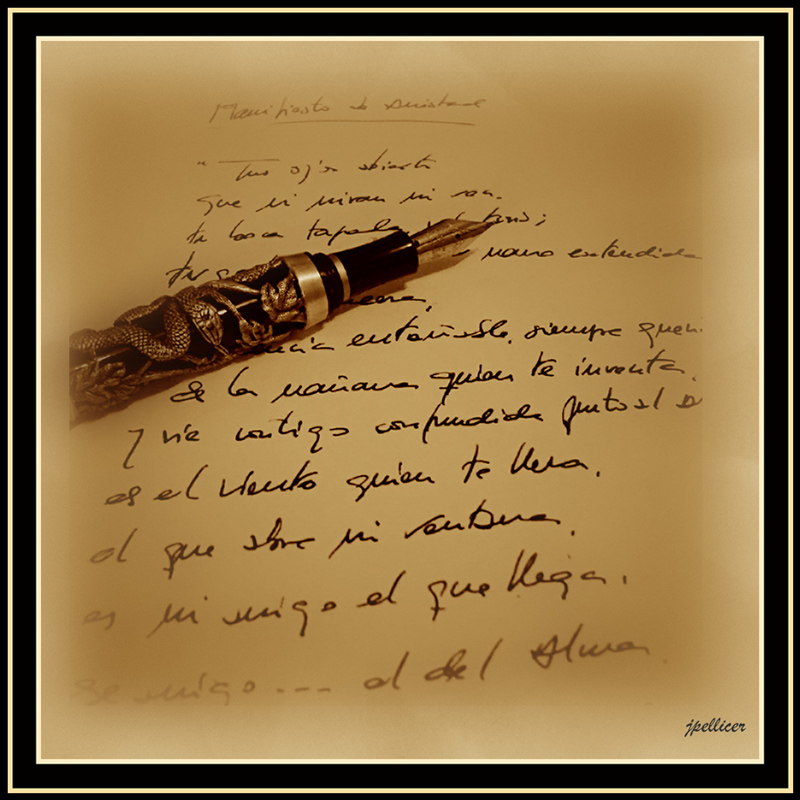 Manifiesto de Amistad
" Tus ojos abiertos
que ni miran ni ven.
tu boca tapada
mano extendida
entrañable, siempre
de la mañana quien te inventa.
y ríe contigo confundida junto al
es el viento quien te lleva.
el que abre mi ventana.
es mi amigo el que llega.
ese amigo --- el del Alma
jpellicer